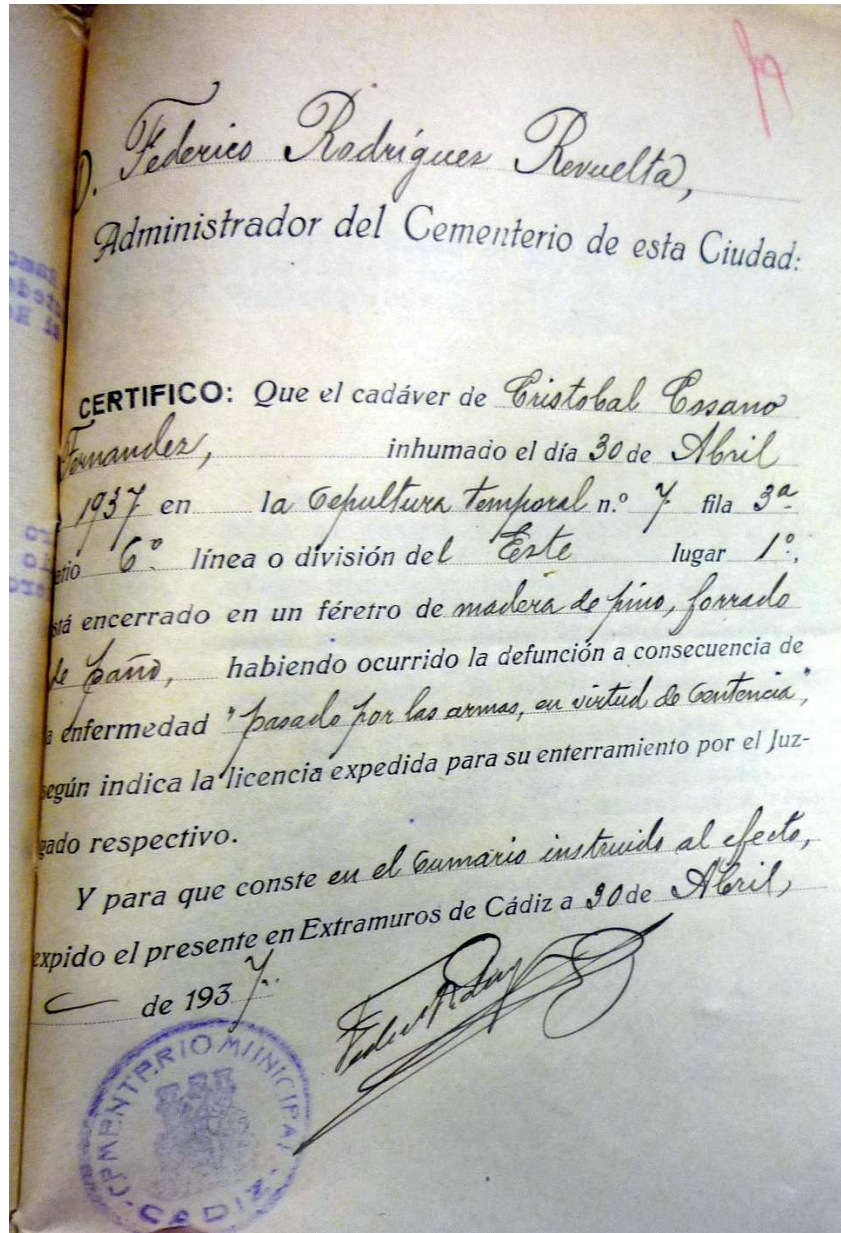 D. Federico Rodríguez Revuelta,
Administrador del Cementerio de esta Ciudad:
CERTIFICO: Que el cadáver de Cristobal Cosano
Fernandez, inhumado el día 30 de Abril
1937 en la Sepultura temporal n.º 7 fila 3ª
6º línea o división del Este lugar 1º,
está encerrado en un féretro de madera de pino, forrado
de paño, habiendo ocurrido la defunción a consecuencia de
la enfermedad "pasado por las armas, en virtud de Sentencia",
según indica la licencia expedida para su enterramiento por el Juz-
gado respectivo.
Y para que conste en el Sumario instruido al efecto,
expido el presente en Extramuros de Cádiz a 30 de Abril,
de 1937.
CEMENTERIO MUNICIPAL
CADIZ